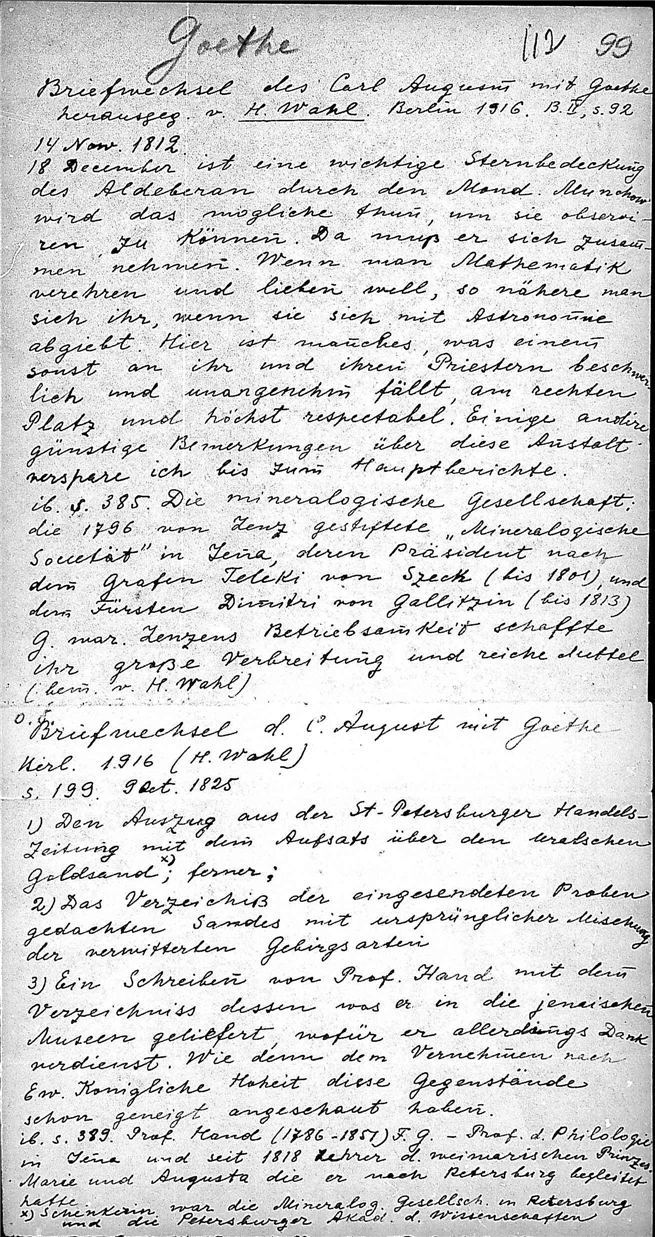 Goethe 112 99
Briefwechsel des Carl August mit Goethe
herausgeg. v. H. Wahl. Berlin 1916. B. II, s. 92
14 Nov. 1812.
18 December ist eine wichtige Sternbedeckung
des Aldeberan durch den Mond. Munchow
wird das mögliche thun, um sie observi-
ren zu können. Da muß er sich zusam-
men nehmen. Wenn man Mathematik
verehren und lieben will, so nähere man
sich ihr, wenn sie sich mit Astronomie
abgiebt. Hier ist manches, was einem
sonst an ihr und ihren Priestern beschwer-
lich und unangenehm fällt, am rechten
Platz und höchst respectabel. Einige andre
günstige Bemerkungen über diese Anstalt
verspare ich bis zum Hauptberichte.
ib. s. 385. Die mineralogische Gesellschaft:
die 1796 von Lenz gestiftete „Mineralogische
Societät" in Jena, deren Präsident nach
dem Grafen Teleki von Szeck (bis 1801) und
dem Fürsten Dimitri von Gallitzin (bis 1813)
G. war. Lenzens Betriebsamkeit schaffte
ihr große Verbreitung und reiche Mittel
(bem. v. H. Wahl)
Briefwechsel d. C. August mit Goethe
Berl. 1916 (H. Wahl)
s. 199. 9 Oct. 1825
1) Den Auszug aus der St-Petersburger Handels-
Zeitung mit dem Aufsats über den uralschen
Goldsand x); ferner;
2) Das Verzeichniß der eingesendeten Proben
gedachten Sandes mit ursprünglicher Mischung
der verwitterten Gebirgsarten
3) Ein Schreiben von Prof. Hand mit dem
Verzeichniss dessen was er in die jenaischen
Museen geliefert, wofür er allerdings Dank
verdienst. Wie denn dem Vernehmen nach
Ew. Königliche Hoheit diese Gegenstände
schon geneigt angeschaut haben.
ib. s. 389. Prof. Hand (1786-1851) F. G. - Prof. d. Philologie
in Jena und seit 1818 Lehrer d. weimarischen Prinzes.
Marie und Augusta die er nach Petersburg begleitet
hatte.
x) Schenkerin war die Mineralog. Gesellsch. in Petersburg
und die Petersburger Akad. d. Wissenschaften